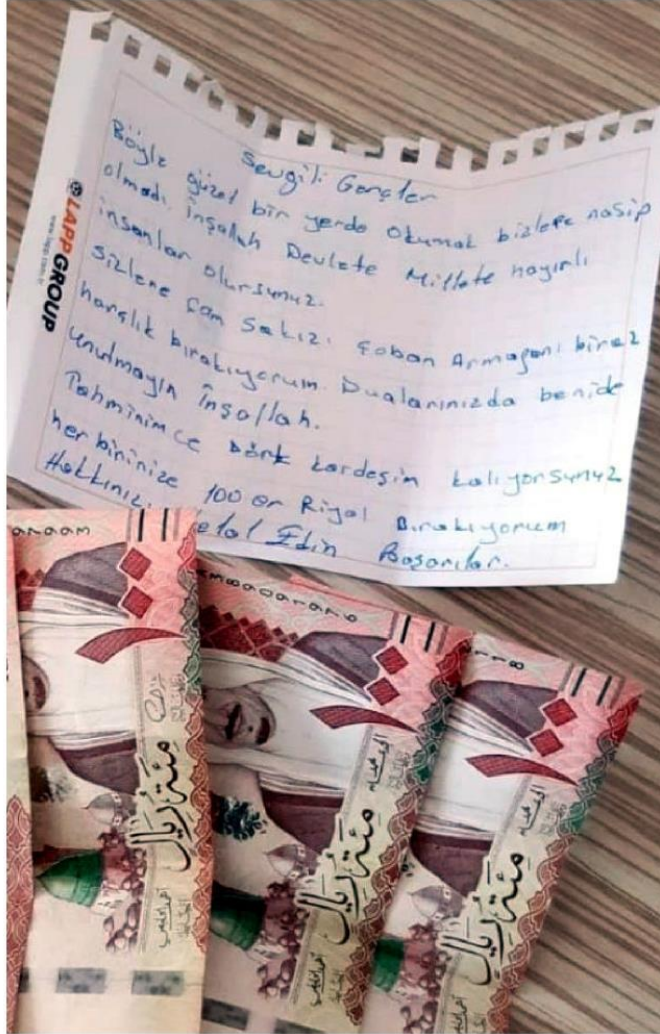 Sevgili Gençler
Böyle güzel bir yerde okumak bizlere nasip
olmadı. İnşallah Devlete Millete hayırlı
insanlar olursunuz.
Sizlere Çam Sakızı Çoban Armağanı biraz
harçlık bırakıyorum. Dualarınızda benide
unutmayın İnşallah.
Tahminimce Dört kardeşim kalıyorsunuz
herbirinize 100 er Riyal Bırakıyorum
Hakkınızı Helal Edin Başarılar.
LAPP GROUP
مئة ريال
مئة ريال
مئة ريال